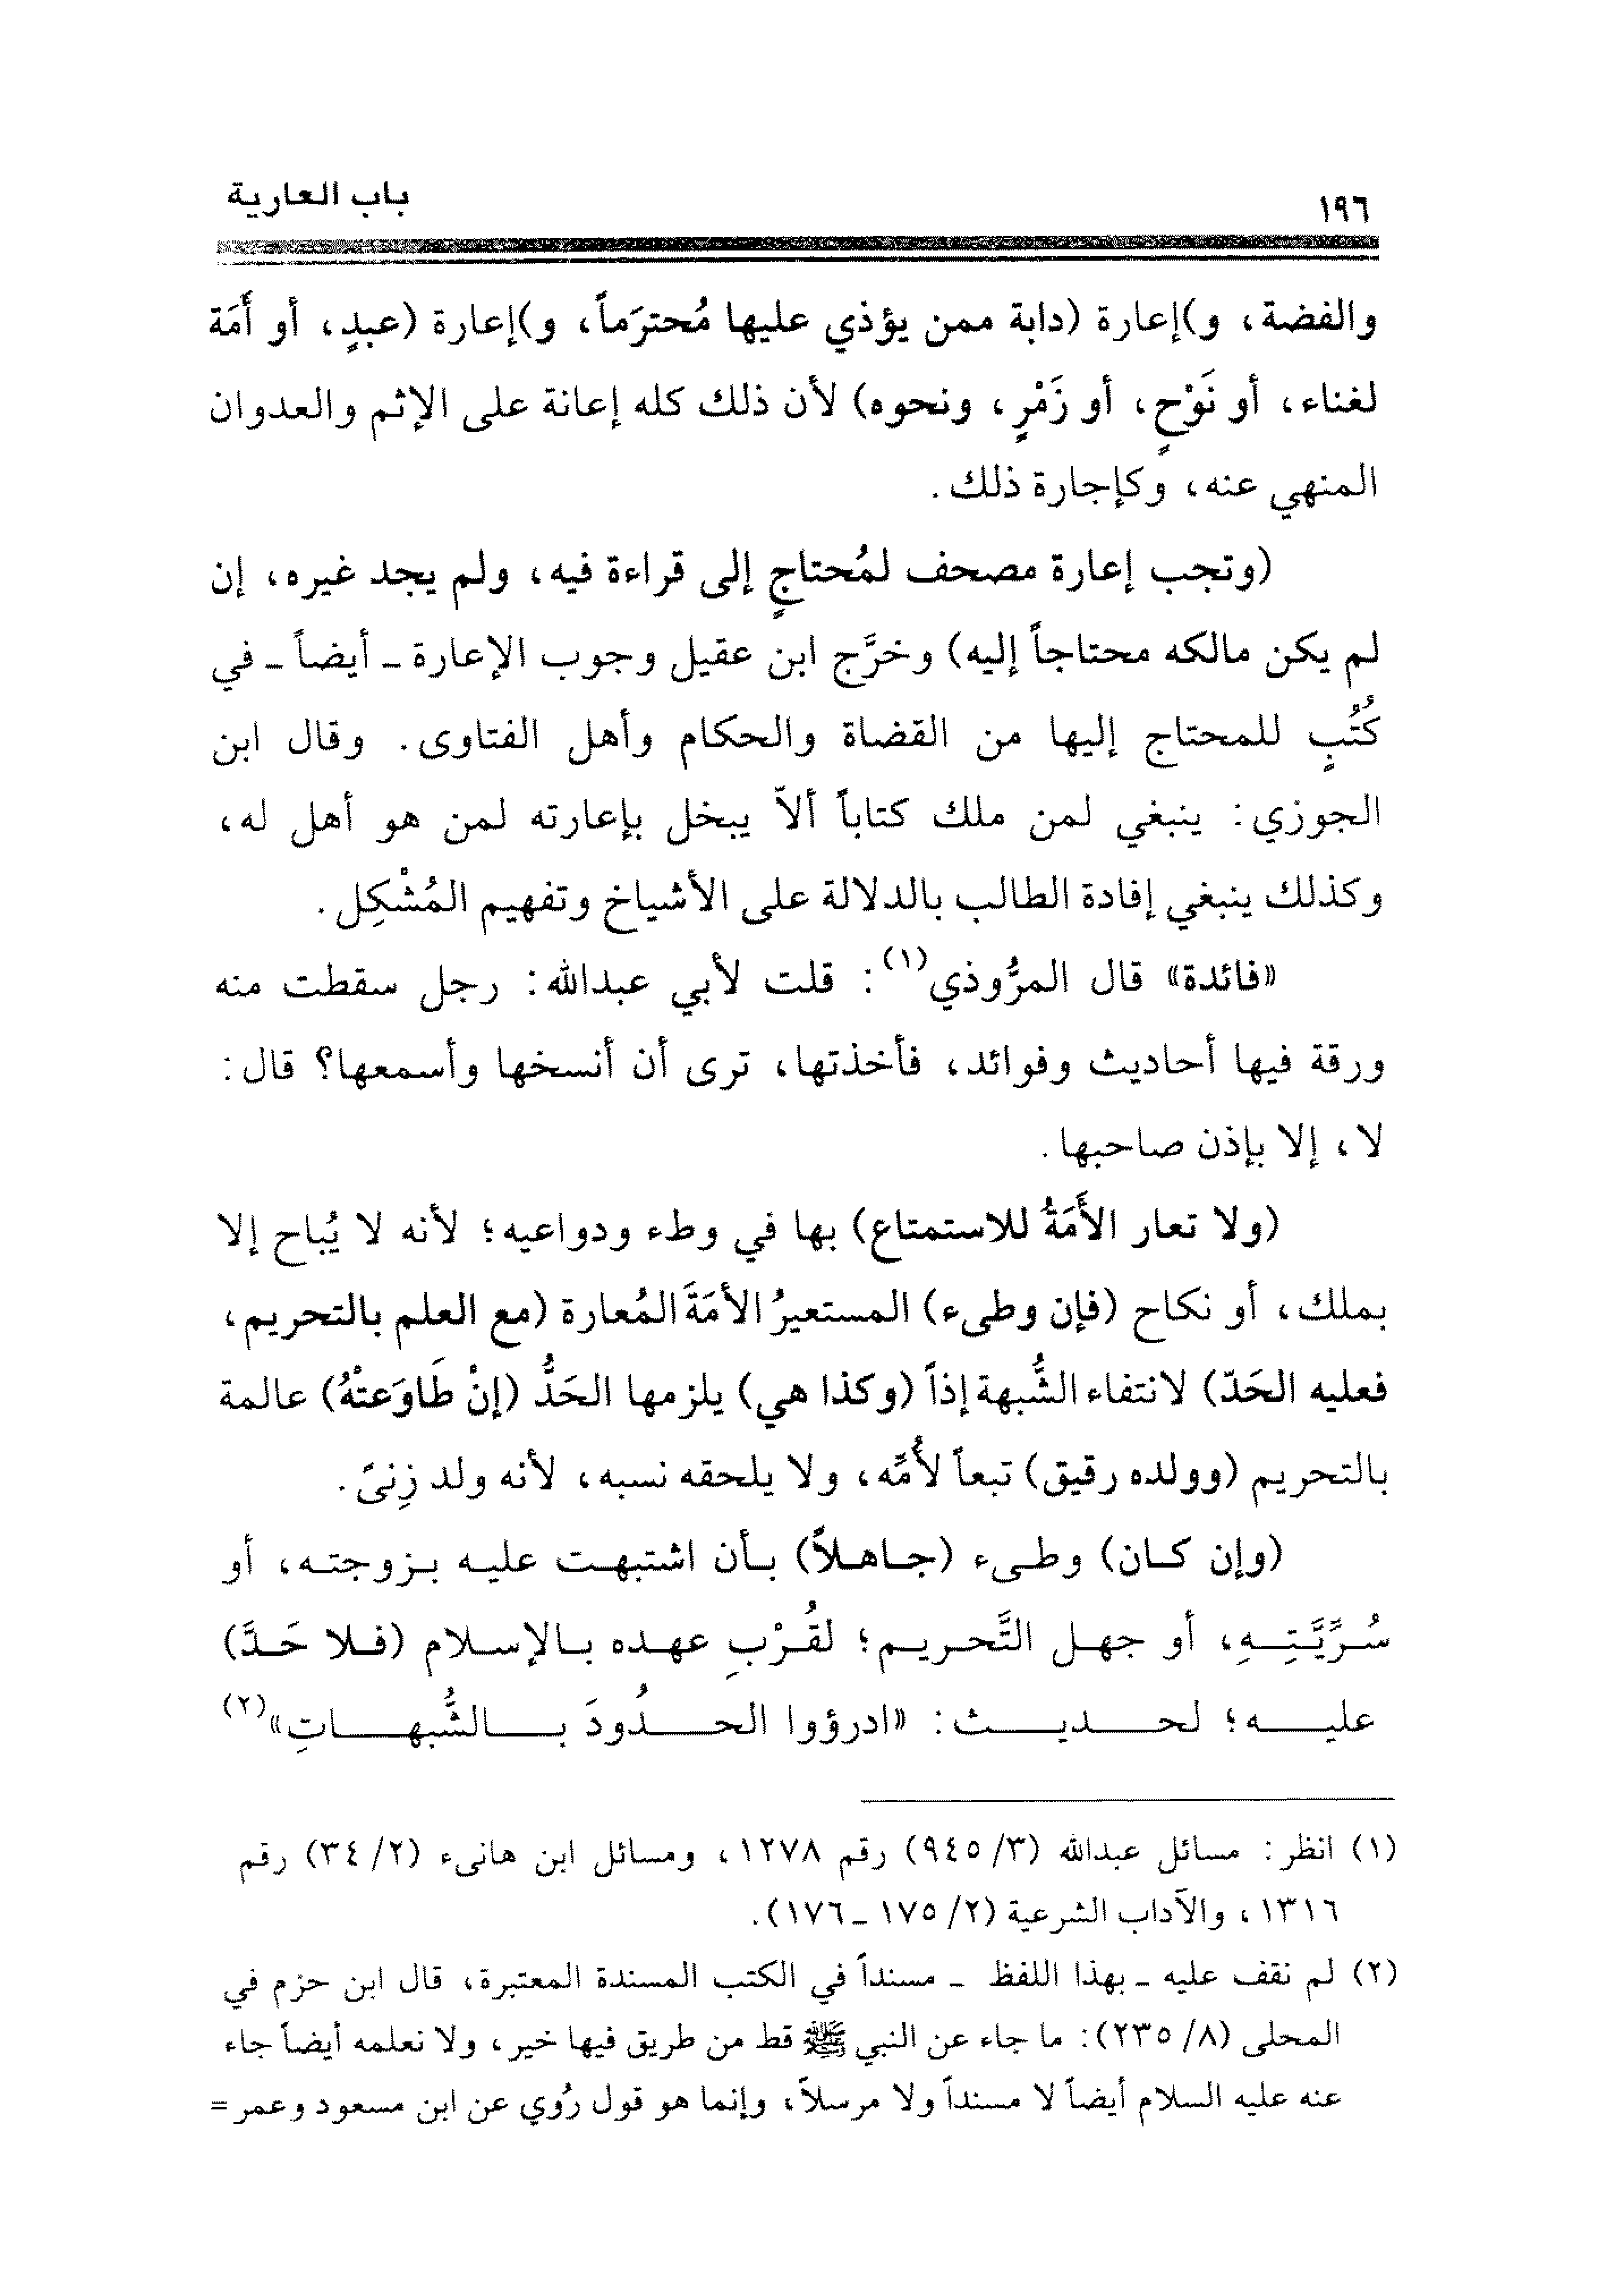 ١٩٦
باب العارية
والفضة، و)إعارة (دابة ممن يؤذي عليها مُحترَماً، و)إعارة (عبدٍ، أو أَمَة
لغناء، أو نَوْحٍ، أو زَمْرٍ، ونحوه) لأن ذلك كله إعانة على الإثم والعدوان
المنهي عنه، وكإجارة ذلك.
(وتجب إعارة مصحف لمُحتاجٍ إلى قراءة فيه، ولم يجد غيره، إن
لم يكن مالكه محتاجاً إليه) وخرَّج ابن عقيل وجوب الإعارة ـ أيضاً ـ في
كُتُبٍ للمحتاج إليها من القضاة والحكام وأهل الفتاوى. وقال ابن
الجوزي: ينبغي لمن ملك كتاباً ألاّ يبخل بإعارته لمن هو أهل له،
وكذلك ينبغي إفادة الطالب بالدلالة على الأشياخ وتفهيم المُشْكِل.
«فائدة» قال المرُّوذي(١): قلت لأبي عبدالله: رجل سقطت منه
ورقة فيها أحاديث وفوائد، فأخذتها، ترى أن أنسخها وأسمعها؟ قال:
لا، إلا بإذن صاحبها.
(ولا تعار الأَمَةُ للاستمتاع) بها في وطء ودواعيه؛ لأنه لا يُباح إلا
بملك، أو نكاح (فإن وطىء) المستعيرُ الأمَةَ المُعارة (مع العلم بالتحريم،
فعليه الحَدّ) لانتفاء الشُّبهة إذاً (وكذا هي) يلزمها الحَدُّ (إنْ طَاوَعتْهُ) عالمة
بالتحريم (وولده رقيق) تبعاً لأُمِّه، ولا يلحقه نسبه، لأنه ولد زِنىً.
(وإن كـان) وطـىء (جـاهـلاً) بـأن اشتبهـت عليـه بـزوجتـه، أو
سُـرِّيَّـتِــهِ، أو جهـل التَّحـريـم؛ لقُـرْبِ عهـده بـالإسـلام (فـلا حَـدَّ)
عليــه؛ لحـديـث: «ادرؤوا الحـدُودَ بـالشُّبهـاتِ»(٢)
(١) انظر: مسائل عبدالله (٣/ ٩٤٥) رقم ١٢٧٨، ومسائل ابن هانىء (٢/ ٣٤) رقم
١٣١٦، والآداب الشرعية (٢/ ١٧٥ ـ ١٧٦).
(٢) لم نقف عليه ـ بهذا اللفظ ـ مسنداً في الكتب المسندة المعتبرة، قال ابن حزم في
المحلى (٨/ ٢٣٥): ما جاء عن النبي ﷺ قط من طريق فيها خير، ولا نعلمه أيضاً جاء
عنه عليه السلام أيضاً لا مسنداً ولا مرسلاً، وإنما هو قول رُوي عن ابن مسعود وعمر =